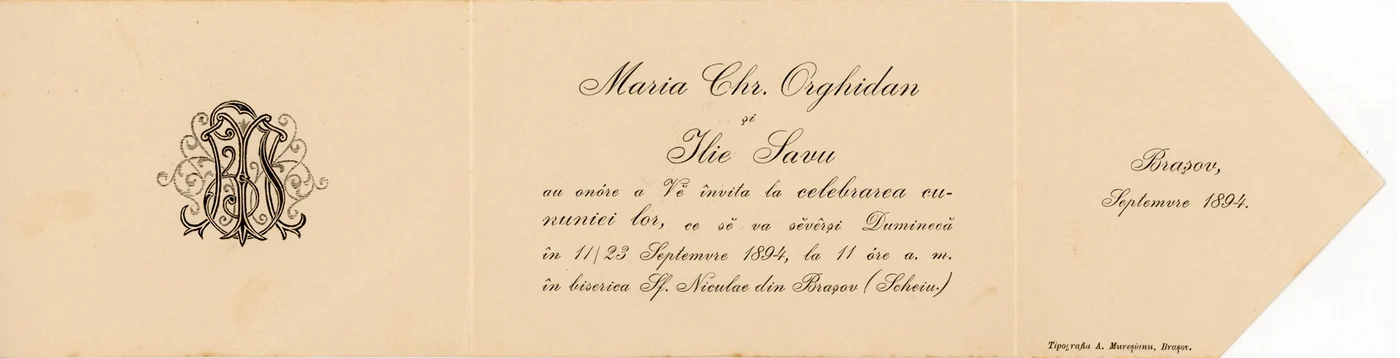 Maria Chr. Orghidan
și
Ilie Savu
au onóre a Vĕ învita la celebrarea cu-
nuniei lor, ce sĕ va sĕvêrși Duminecă
în 11/23 Septemvre 1894, la 11 óre a. m.
în biserica Sf. Niculae din Brașov (Scheiu.)
Brașov,
Septemvre 1894.
Tipografia A. Mureșianu, Brașov.